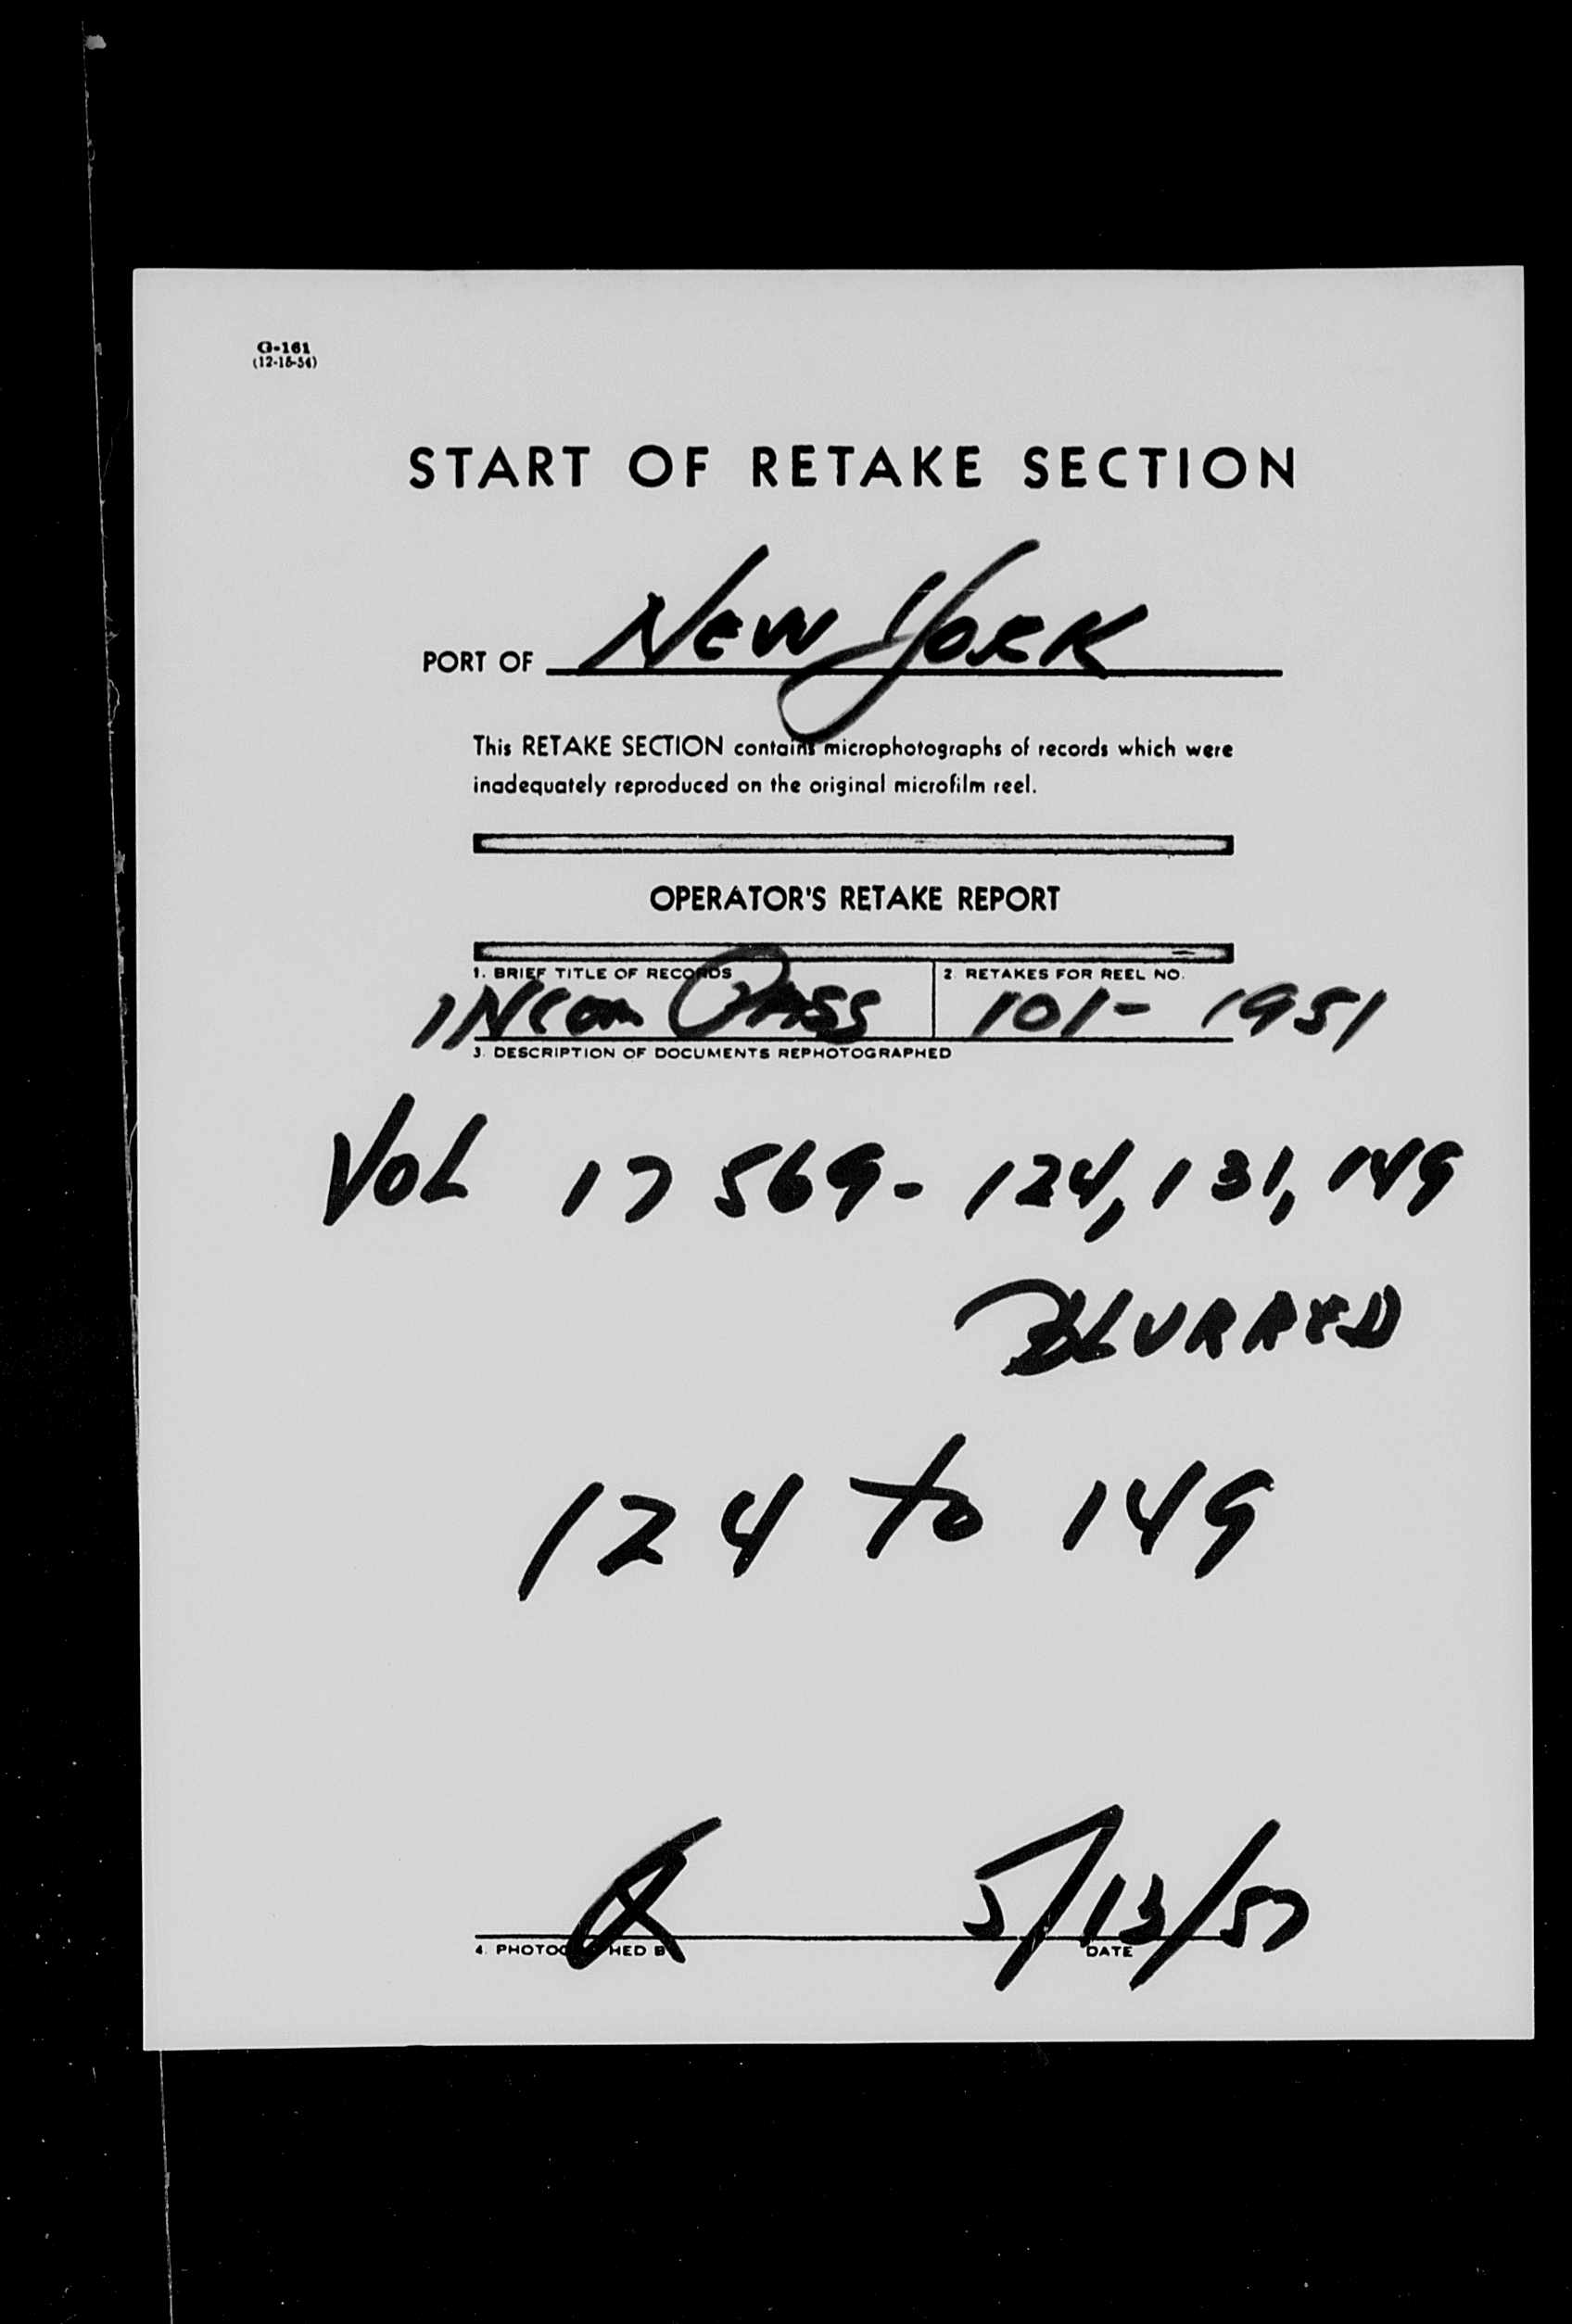 G-161
(12-15-54)
START OF RETAKE SECTION
PORT OF NEW YORK
This RETAKE SECTION contains microphotographs of records which were
inadequately reproduced on the original microfilm reel.
OPERATOR'S RETAKE REPORT
1. BRIEF TITLE OF RECORDS 2. RETAKES FOR REEL NO.
INCOM PASS 101- 1951
3. DESCRIPTION OF DOCUMENTS REPHOTOGRAPHED
VOL 17569- 124, 131, 149
BLURRED
124 to 149
5/13/57
4. PHOTOGRAPHED BY DATE